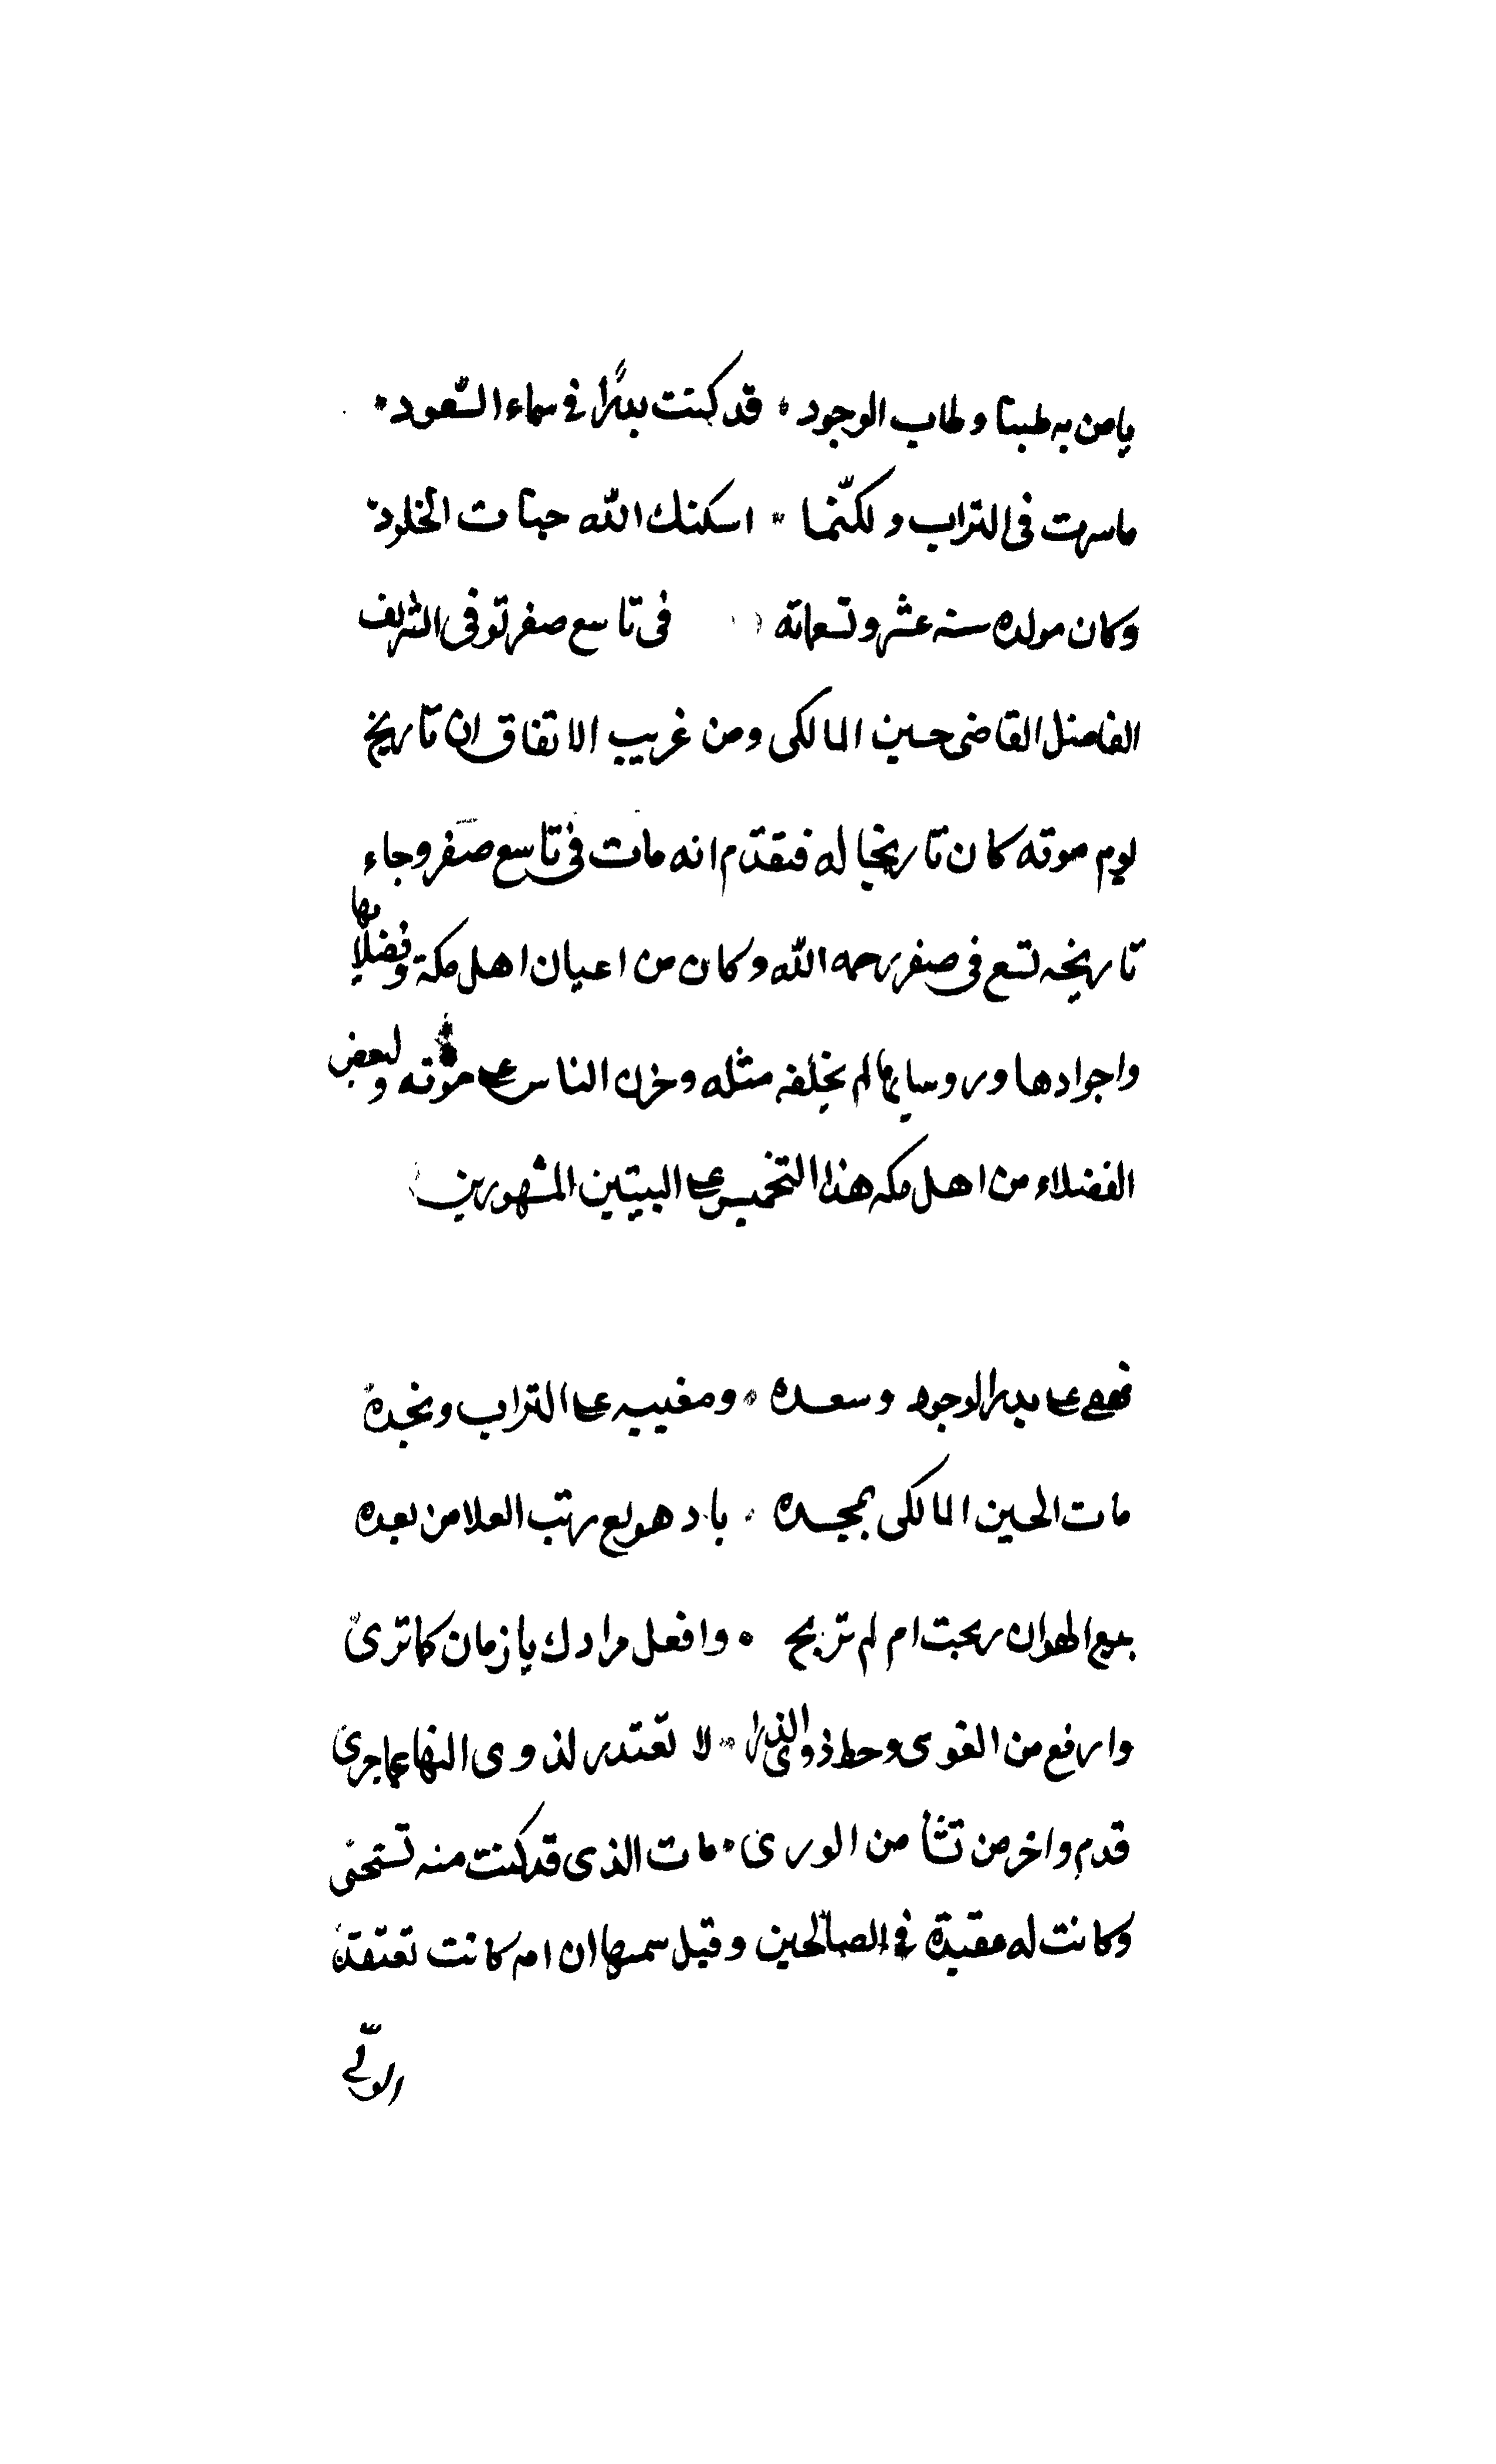 يا من به طبنا وطاب الوجود • قد كنت بدرًا في سماء السّعود •
ما سرت في التراب ولكنّما • اسكنك اللّه جنات الخلود
وكان مولده سنه عشر وتسعمائة في تاسع صفر توفى الشريف
الفاضل القاضى حسين المالكى ومن غريب الاتفاق ان تاريخ
يوم موته كان تاريخا له فتقدّم انه مات في تاسع صفر وجاء
تاريخه تسع في صفر رحمه اللّه وكان من اعيان اهل مكة وفضلائها
واجوادها وروسايها لم يخلفه مثله وحزن الناس على موته ولبعض
الفضلاء من اهل مكه هذا التخميس على البيتين المشهورين
على بدر الوجود وسعده • ومغيبه على التراب ونجده
مات الحسين المالكى بمجده • يا دهر بع رتب العلا من بعده
بيع الهوان ربحت ام لم تربح • وافعل مرادك يا زمان كما ترى
وارفع من الغوى وحط ذوى الذرا • لا تعتدر لذوى النها عما جرى
قدم واخر من تشأ من الورى • مات الذى قد كنت منه تستحى
وكانت له عقيدة في الصالحين وقيل سمها ان امه كانت تعتقد
الولّي